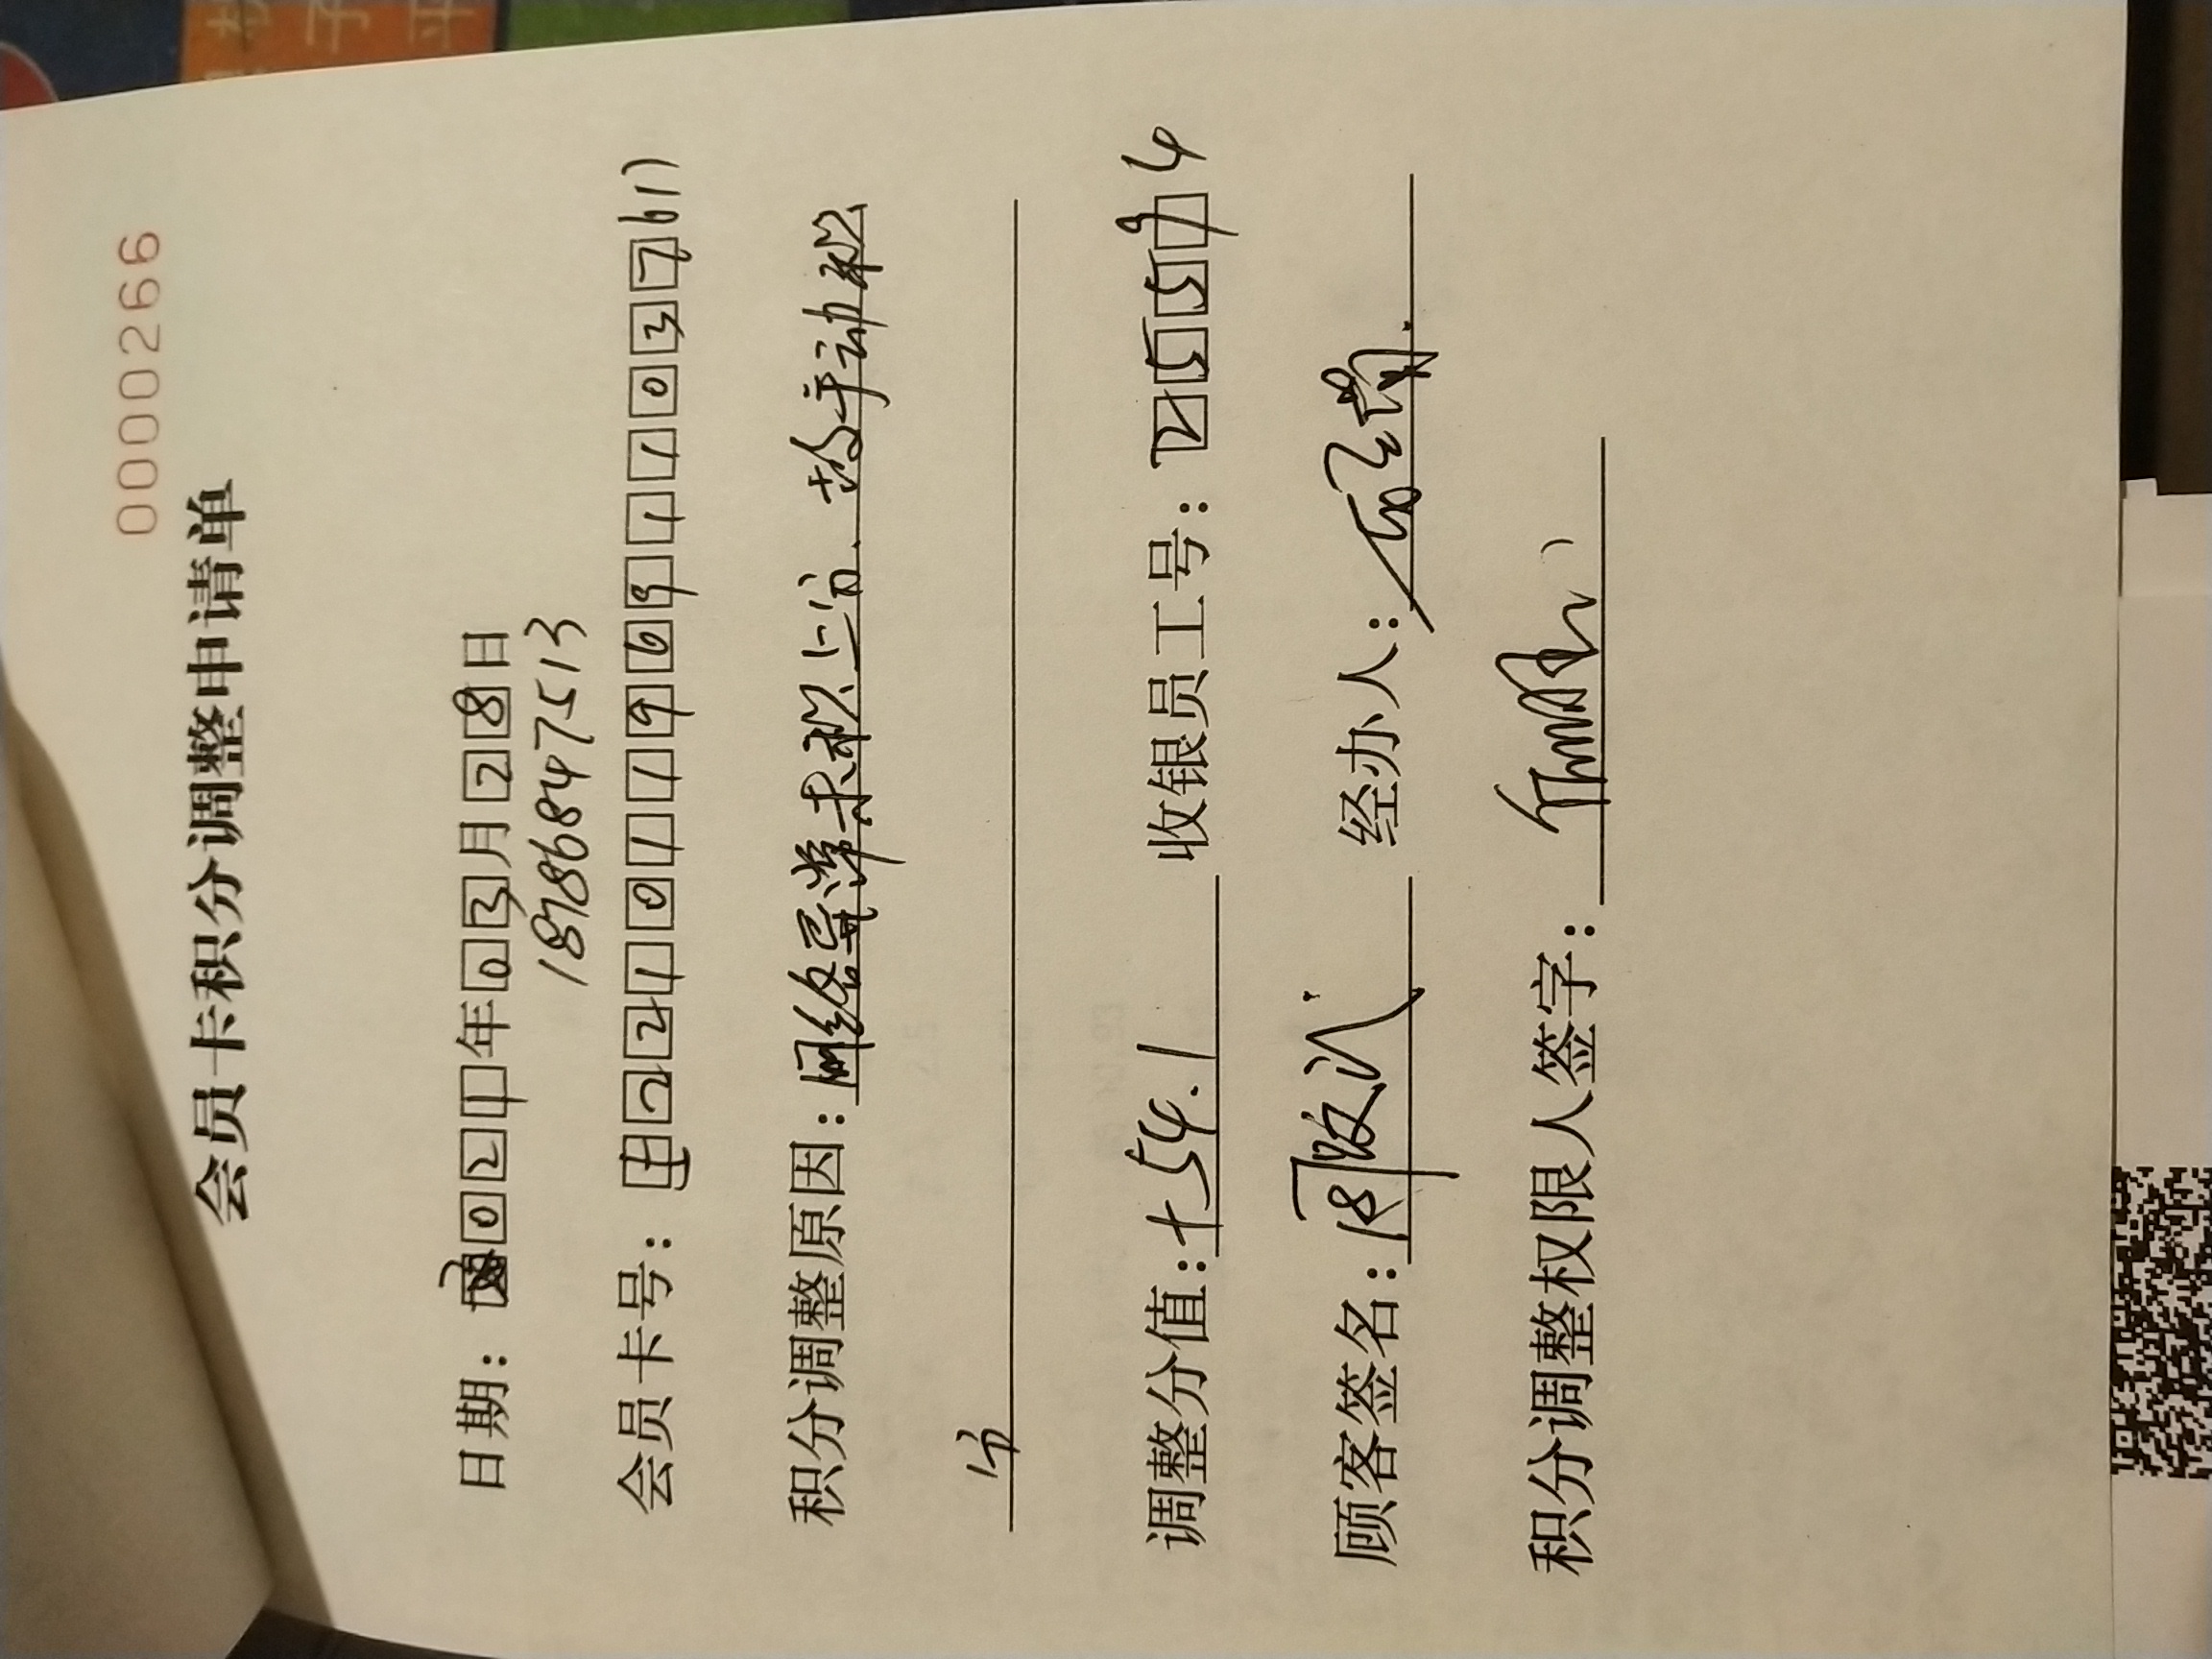 0000266
会员卡积分调整申请单
日期：2021年03月28日
18786847513
会员卡号：522101196911103761)
积分调整原因：网络异常未积上分.故手动积
分
调整分值：+54.1 收银员工号：255594
顾客签名： 经办人：
积分调整权限人签字：